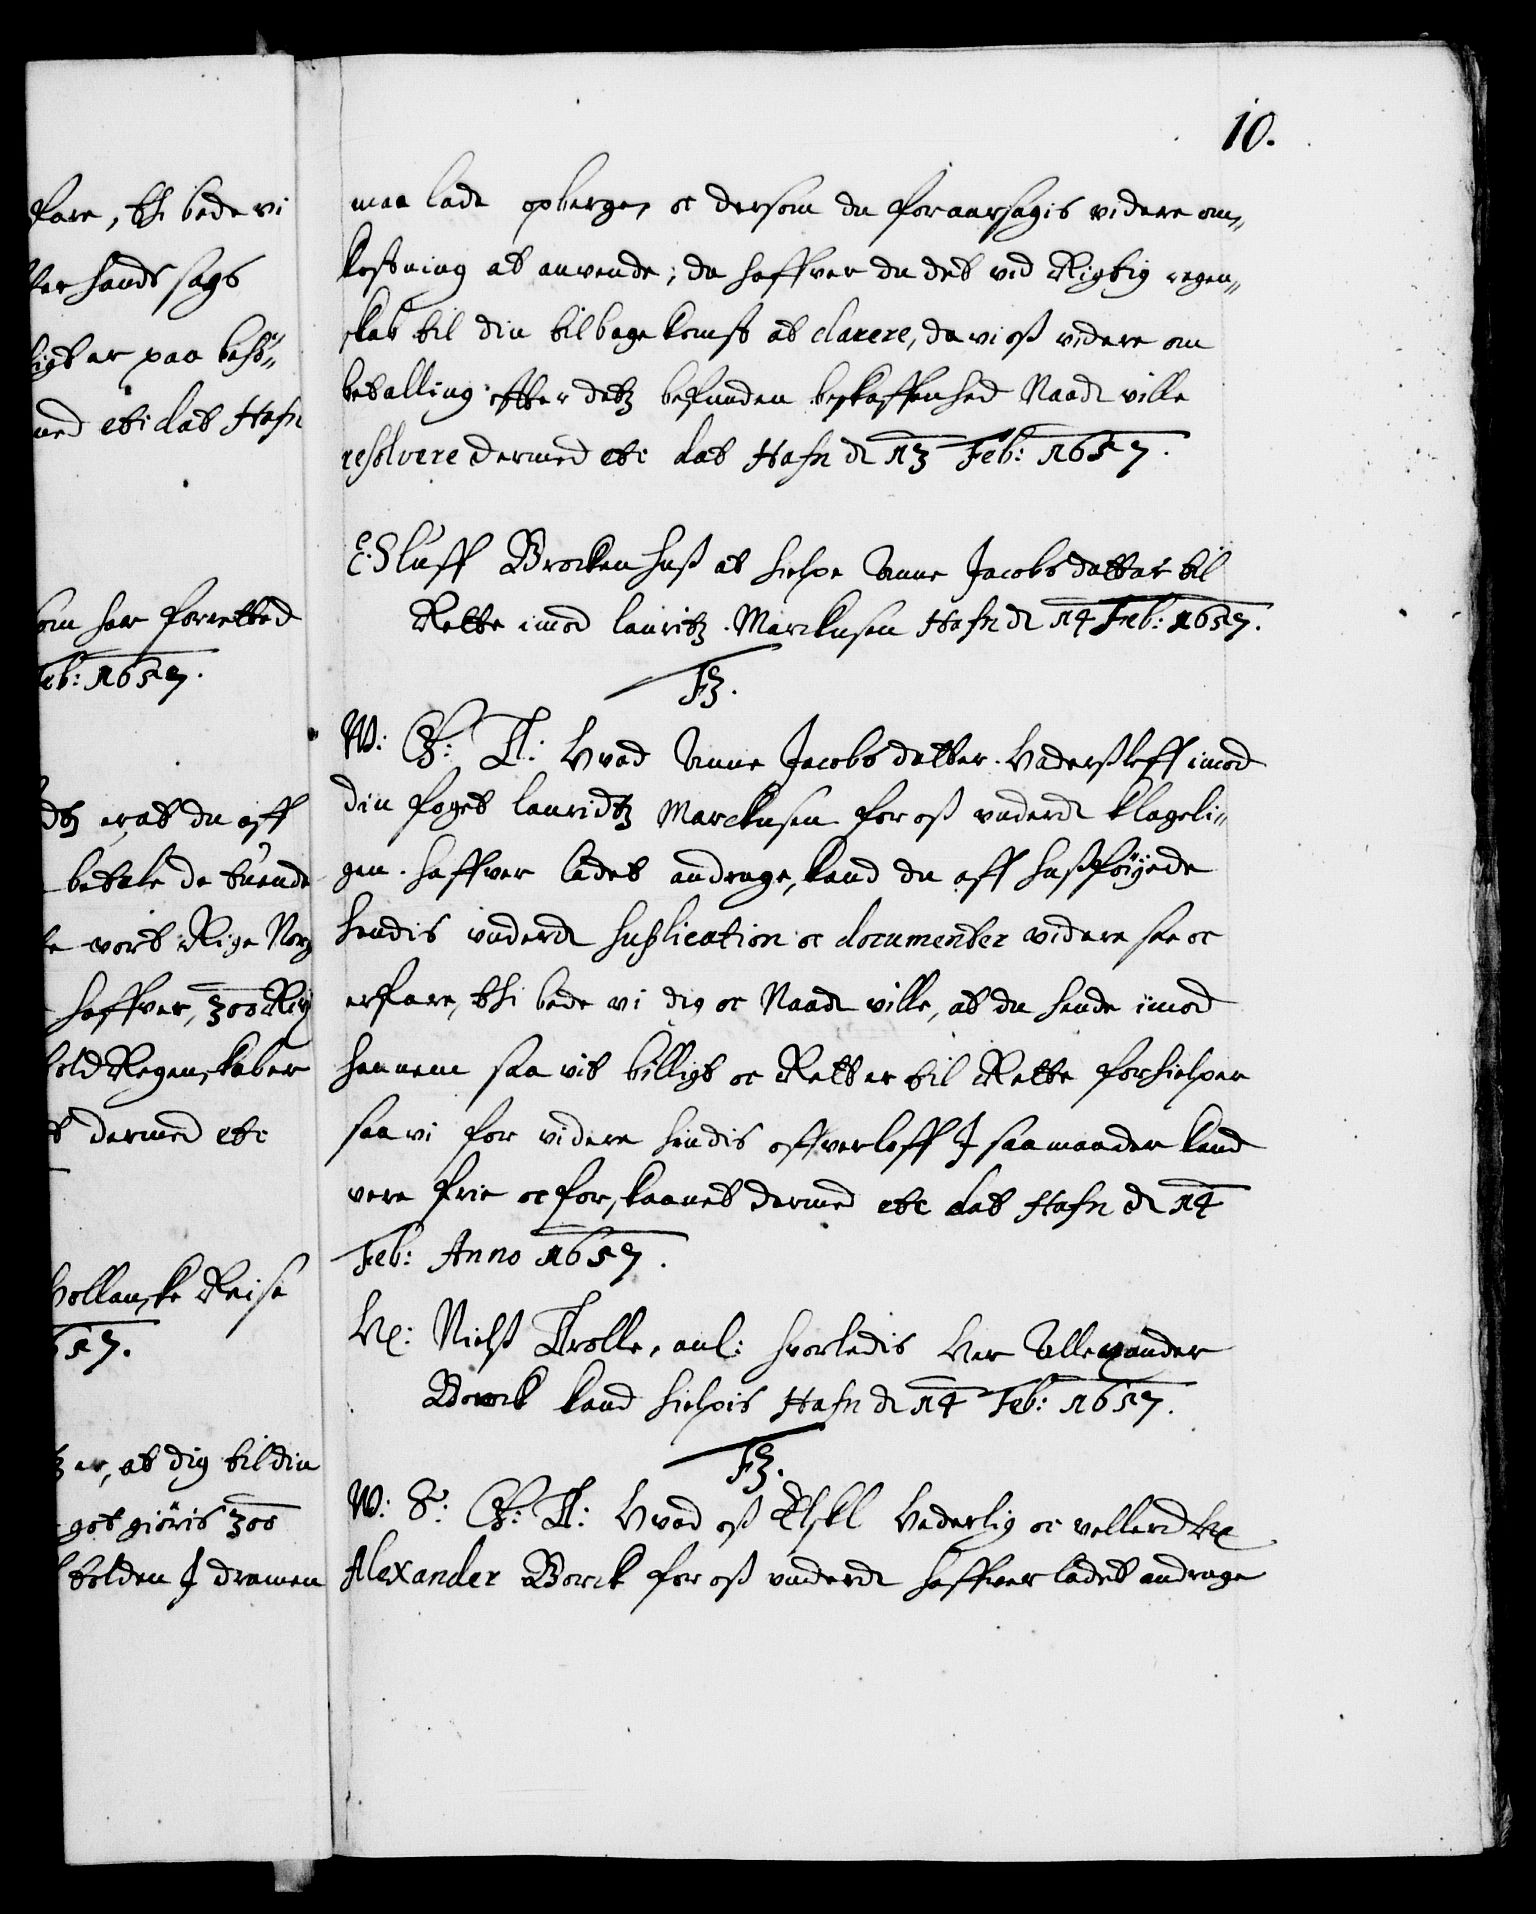 10.
fare, thi bede vi
ter hands sags
ligt er paa besø„
med etc dat Hafn
som har forretted
eb: 1657.
dtz er, at du aff
betale de tuende
te vort Rige Norg
haffver, 300 Rix
hold Regenskaber
t dermed etc
hollanske Reise
657.
tz er, at dig til din
got giöris 300
tolden J dramen
maa lade opberge, oc dersom du foraarsagis videre om„
kostning at anvende; da haffver du det ved Rigtig regen„
skab til din tilbagekomst at clarere, da vi oß videre om
betalling efter detz befunden beskaffenhed Naadt ville
resolvere dermed etc dat Hafn d 13 Feb: 1657.
E. Sluff Brockenhuß at hielpe Anne Jacobs datter til
Rette imod lauritz Marckusen Hafn d 14 Feb: 1657.
F3.
W: G: T: Hvad Anne Jacobs datter Haderßleff imod
din foget lauridtz Marckusen for oß underdt klageli„
gen haffver ladet andrage, kand du aff hußföyede
hendis underdt suplication oc documenter videre see oc
erfare, thi bede vi dig oc Naadt ville, at du hende imod
hannem saa vit billigt oc Ret er til Rette forhielper
saa vi for videre hendis offverløff J saa maader kand
vere frie oc forskaanet dermed etc dat Hafn d 14
Feb: Anno 1657.
Hr: Nielß Trolle, anl: hvorledis Her Allexander
Borck kand hielpis Hafn d 14 Feb: 1657.
F3.
W: S: G: T: Hvad oß Elskl Hederlig oc vellerd Hr
Alexander Borck for oß underdt haffver ladet andrage